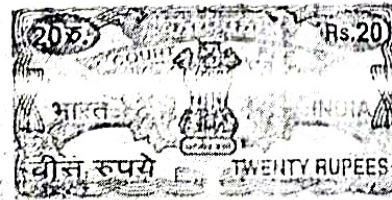 20रु. Rs.20
COURT
भारत INDIA
बीस रुपये TWENTY RUPEES